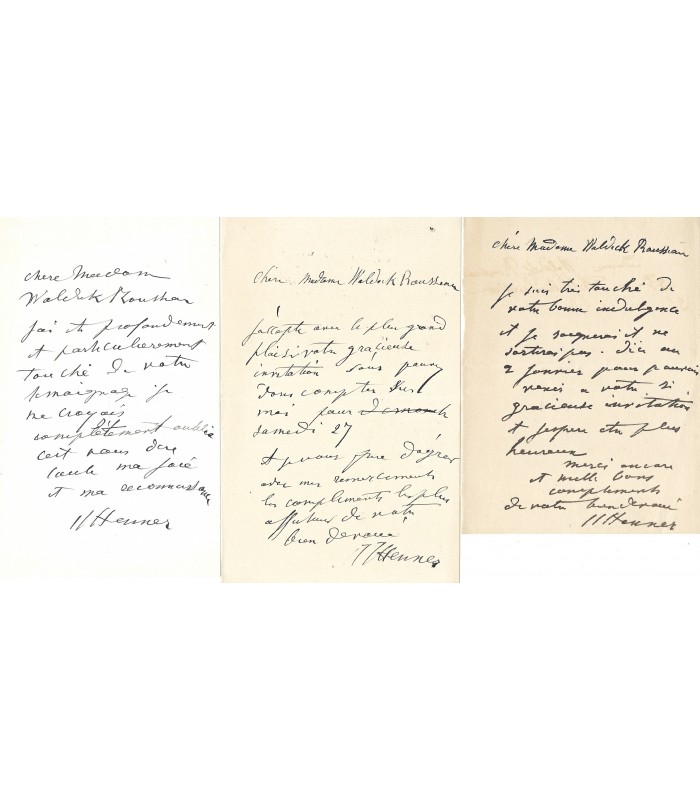 chere Madam
Waldick Roussean
J'ai été profondement
et particulierement
touché de votre
temoignage je
me croyais
complètement oublié
cest vous dire
toute ma joie
et ma reconnaissance
JJHenner
chère Madame Waldick Rousseau
J'accepte avec le plus grand
plaisir votre gracieuse
invitation vous pouvez
donc compter sur
moi pour demande
samedi 27
et je vous prie d'agréer
avec mes remerciements
les compliments les plus
affectueux de votre
bien devoué
JJHenner
chère Madame Waldick Roussean
Je suis très touché de
votre bonne indulgence
et je soignerai et ne
sortirai pas. D'ici au
2 Janvier pour pouvoir
venir a votre si
gracieuse invitation
et j'espere etre plus
heureux
merci encore
et mille bons
compliments
de votre bien devoué
JJHenner